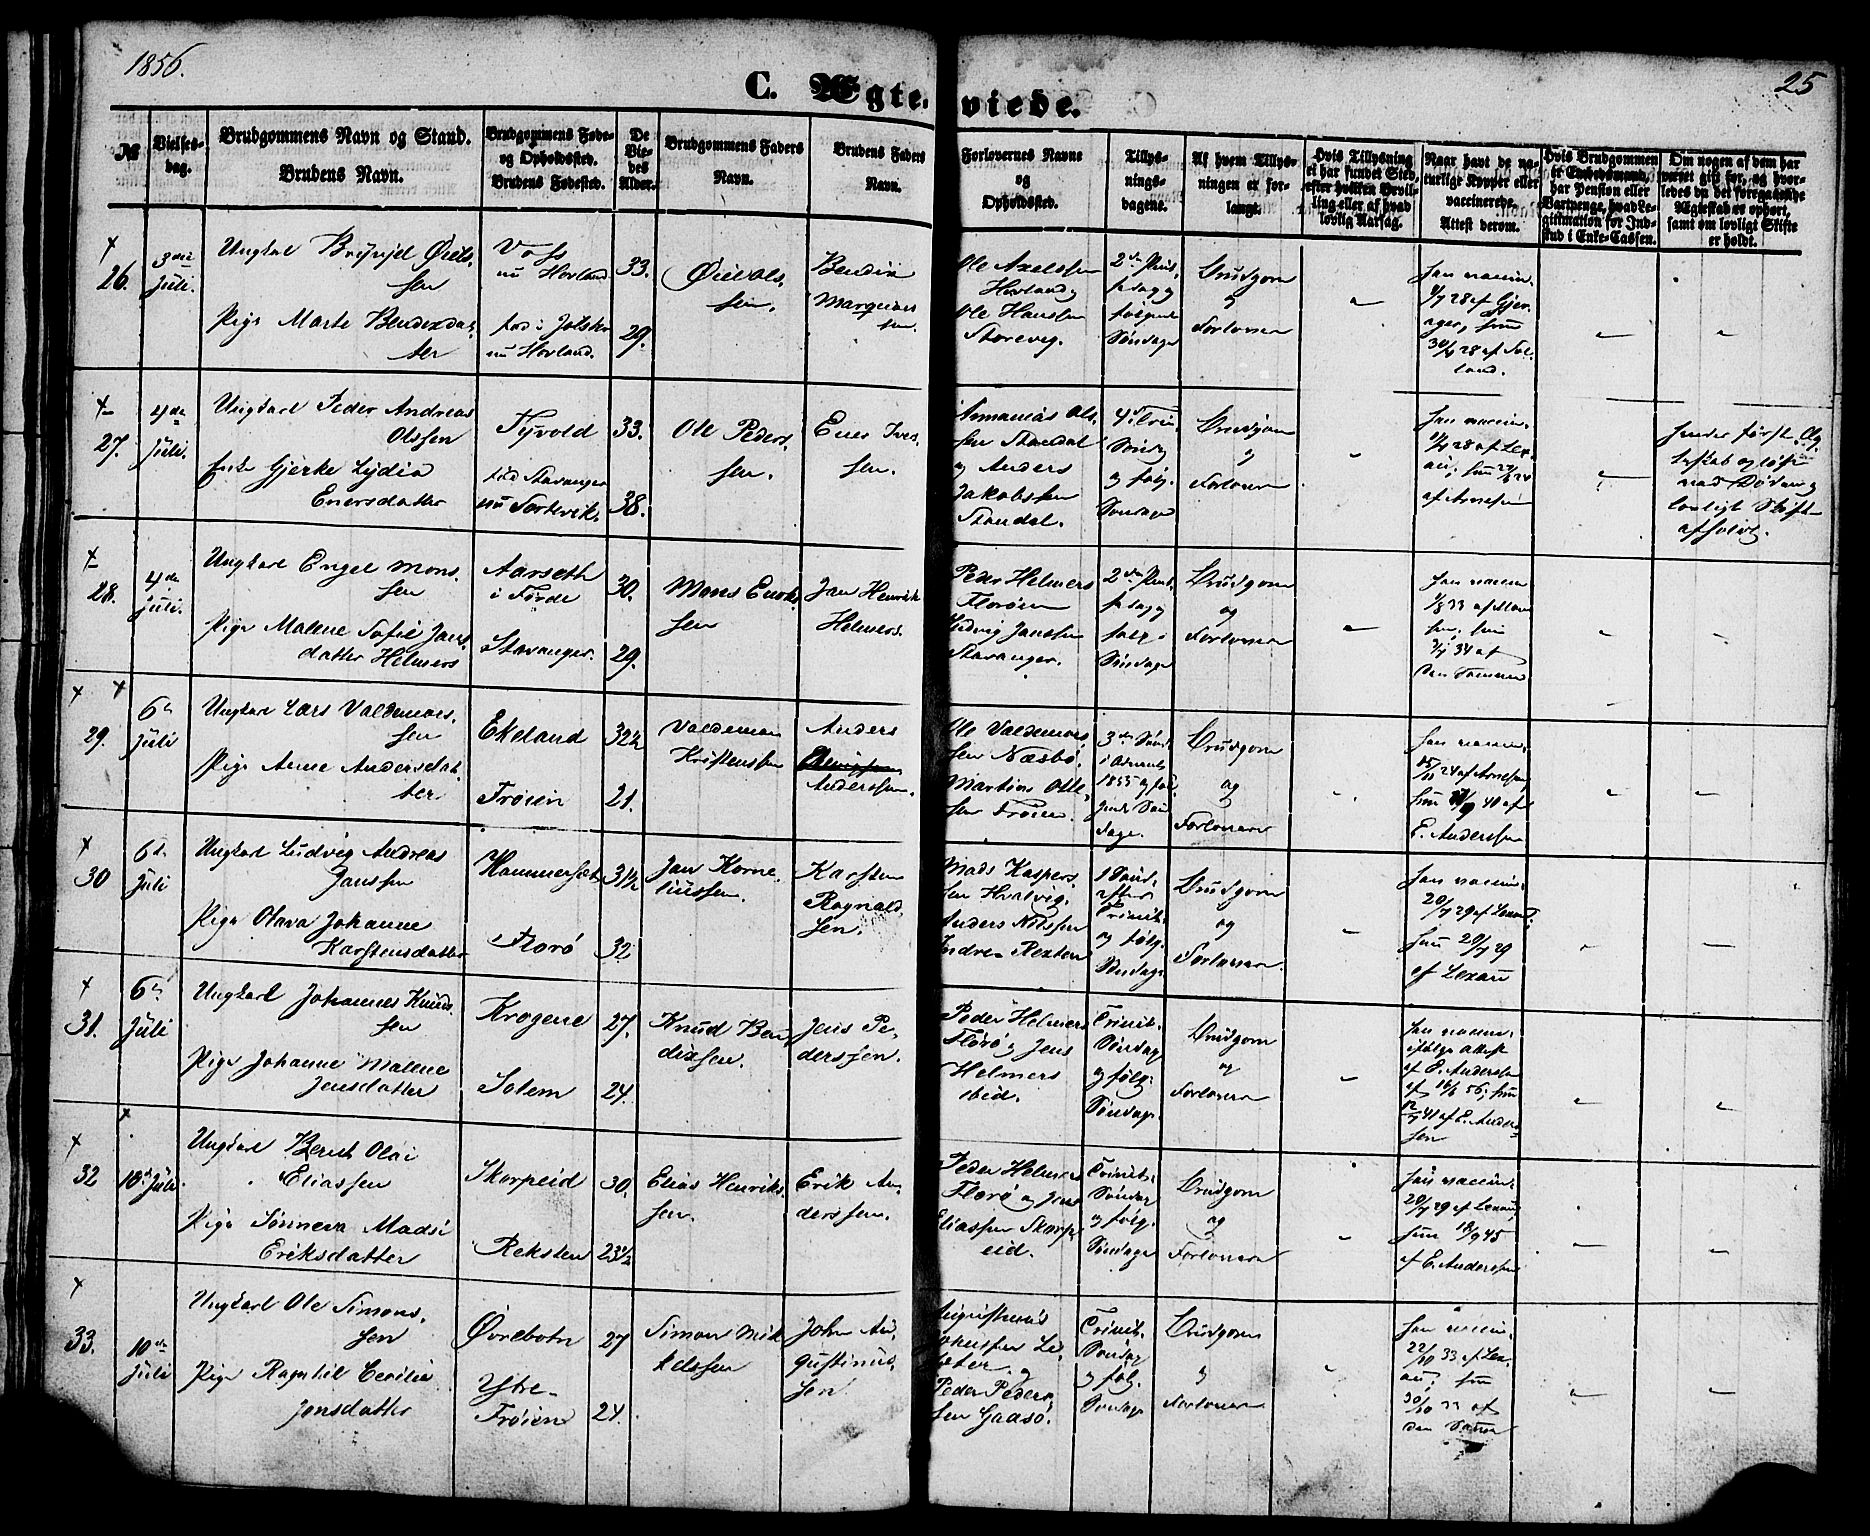 1856.
25
C. Ægteviede.
№
Vielsesdag.
Brudgommens Navn og Stand.
Brudens Navn.
Brudgommens Føde-
og Opholdssted.
Brudens Fødested.
De
Vie-
des
Alder.
Brudgommens Faders
Navn.
Brudens Faders
Navn.
Forlovernes Navne
og
Opholdssted.
Tillys-
nings-
dagene.
Af hvem Tillys-
ningen er for-
langt.
Hvis Tillysning
ei har fundet Sted,
efter hvilken Bevil-
ling eller af hvad
lovlig Aarsag.
Naar havt de na-
turlige Kopper eller
vaccinerede.
Attest derom.
Hvis Brudgommen
er Embedsmand,
har Pension eller
Vartpenge, hvad Le-
gitimation for Ind-
skud i Enke-Cassen.
Om nogen af dem har
været gift før, og hvor-
ledes da det foregaaende
Ægteskab er ophørt,
samt om lovligt Skifte
er holdt.
26.
3die
Juli.
Ungkarl
sen
Pige Marte Bendixdat-
ter
Voss
nu Hovland
fød i Jølster
nu Hovland.
33.
29.
sen.
Bendix
Marquus
sen.
Ole Axelssen
Hovland og
Ole Hanssen
Storevig.
2den Pint-
sedag og
følgende
Søndage
Brudgom
og
Forlovere
Han vaccin.
28 af Gjer-
ager, hun
30/9 28 af
land.
27.
4de
Juli.
Ungkarl Peder Andreas
Olssen
Enke Gjerke Lydia
Enersdatter
Tyvold
fød Stavanger
nu
33.
38.
Ole Peders-
sen.
Ener Ives-
sen.
Annanias Ols-
sen Standal
og Anders
Jakobssen
Standal.
4 Trin.
Søndag
og følg.
Søndage
Brudgom
og
Forlovere
Han vaccin.
28 af Lex-
au, hun
af Arnesen
Hendes første Æg-
teskab opløst
ved Døden og
lovligt Skifte
afholdt.
28.
4de
Juli.
Ungkarl Engel Mons-
sen
Pige Malene Sofie Jans-
datter Helmers
Aarseth
i Førde
Stavanger.
30.
29.
Mons Enok-
sen
Jan Henrik
Helmers.
Peder Helmers
Florøen
Ludvig Janssen
Stavanger.
2den Pint-
sedag og
følg.
Søndage
Brudgom
og
Forlovere
Han vaccin.
1/8 33 af
hun
34 af
den Samme
29.
6te
Juli
Ungkarl Lars Valdemars-
sen
Pige Anne Andersdat-
ter
Ekeland
Trøien
32½
21.
Valdemar
Kristenssen
Anders
Anderssen.
Ole Valdemars-
sen Næsbø,
Martin Olle-
sen Trøien.
3die Sønd.
i Advent
1855 og føl-
gende Søn-
dage.
Brudgom
og
Forlovere
Han vaccin.
24 af Arnesen
hun 40 af
E. Anderssen
30
6te
Juli
Ungkarl Ludvig Andreas
Janssen
Pige Olava Johanne
Karstensdatter
Hammerset
Florø
31½
32
Jan Korne-
liussen.
Karsten
Ragnald-
sen.
Mads Kaspers-
sen Hvalvig.
Anders Nilssen
Indre Rexten
1 Sønd.
efter
Trinit.
og følg.
Søndage
Brudgom
og
Forlovere
Han vaccin.
20/7 29 af Lexau,
hun 20/7 29
af Lexau
31.
6te
Juli
Ungkarl Johannes Knuds-
sen
Pige Johanne Malene
Jensdatter
Krogene
Solem
27.
24.
Knud Ben-
dixsen.
Jens Pe-
derssen.
Peder Helmers
Florø og Jens
Helmers
ibid.
Trinit.
Søndag
og følg.
Søndage
Brudgom
og
Forlovere
Han vaccin.
ifølge Attest
af E. Anderssen
af 16/6 56; hun
41 af E. Anders-
sen
32
10de Juli.
Ungkarl Bernt Olai
Eliassen
Pige Sønneva Madsi
Eriksdatter
Skorpeid
Reksten
30.
23½
Elias Henriks-
sen.
Erik An-
derssen.
Peder Helmers
Florø og Jens
Eliassen Skorp-
eid.
Trinit.
Søndag
og følg.
Søndage
Brudgom
og
Forlovere
Han vaccin.
20/7 29 af Lexau,
hun 18/9 45
af E. Anderssen
33.
10de
Juli
Ungkarl Ole Simons-
sen
Pige Ragnhil Cecilia
Jonsdatter
Øvrebotn
Ytre-
Trøien
27
24.
Simon Mik-
kelssen
John Au-
gustinus-
sen
Peder Peders-
sen Gaasø.
Trinit.
Søndag
og følg.
Søndage
Brudgom
og
Forlovere
Han vaccin.
22/10 33 af Lex-
au; hun
30/10 33 af
den Samme